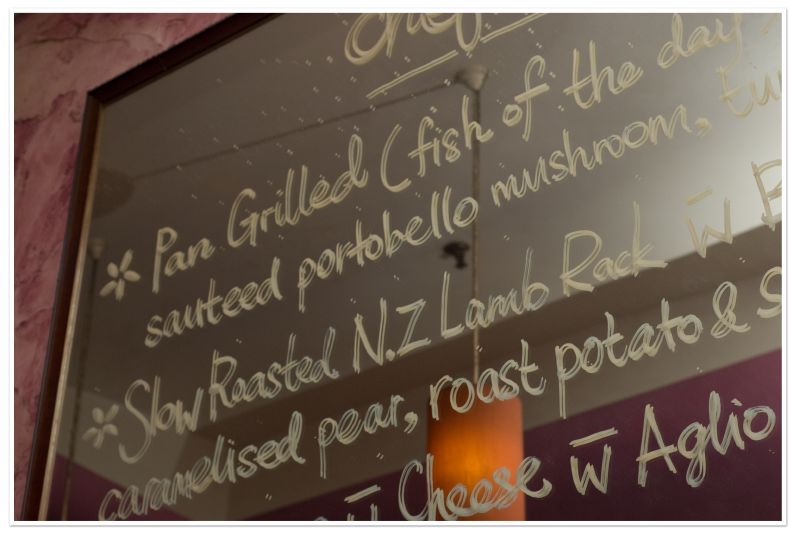 Chef
* Pan Grilled (fish of the day
sauteed portobello mushroom,
* Slow Roasted N.Z Lamb Rack w̅
caramelised pear, roast potato &
w̅ Cheese w̅ Aglio